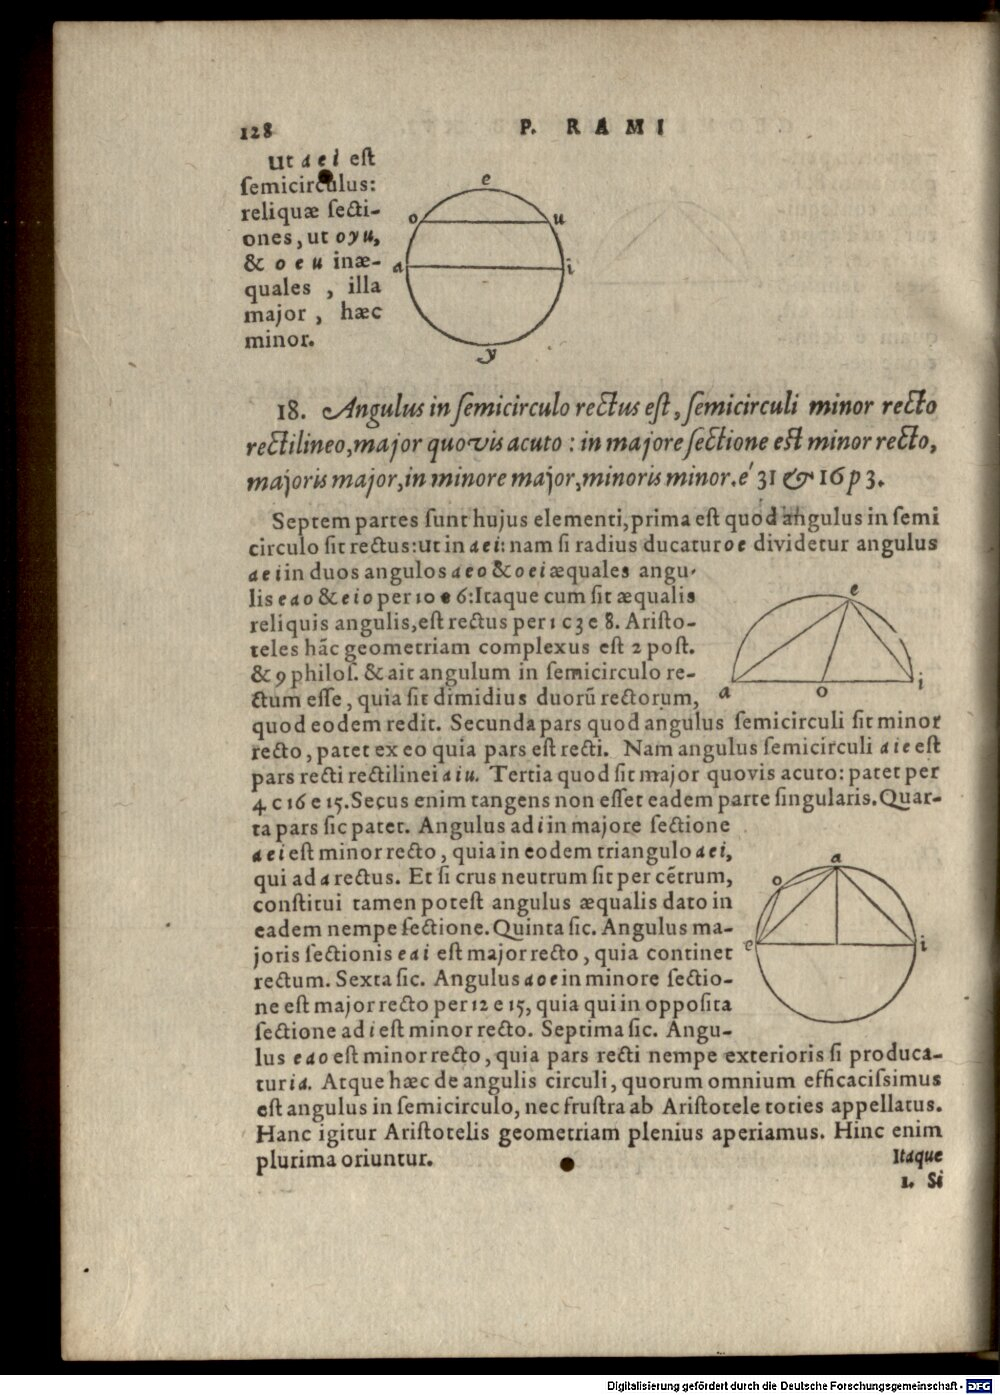 128
P. RAMI
Ut a e i est
semicirculus:
reliquæ secti-
ones, ut o y u,
& o e u inæ-
quales , illa
major , hæc
minor.
e
o
u
a
i
y
18. Angulus in semicirculo rectus est, semicirculi minor recto
rectilineo, major quovis acuto : in majore sectione est minor recto,
majoris major, in minore major, minoris minor. é 31 & 16 p 3.
Septem partes sunt hujus elementi, prima est quod angulus in semi
circulo sit rectus: ut in a e i: nam si radius ducatur o e dividetur angulus
a e i in duos angulos a e o & o e i æquales angu-
lis e a o & e i o per 10 e 6: Itaque cum sit æqualis
reliquis angulis, est rectus per 1 c 3 e 8. Aristo-
teles hāc geometriam complexus est 2 post.
& 9 philos. & ait angulum in semicirculo re-
ctum esse, quia sit dimidius duorū rectorum,
e
a
o
i
quod eodem redit. Secunda pars quod angulus semicirculi sit minor
recto, patet ex eo quia pars est recti. Nam angulus semicirculi a i e est
pars recti rectilinei a i u. Tertia quod sit major quovis acuto: patet per
4 c 16 e 15. Secus enim tangens non esset eadem parte singularis. Quar-
ta pars sic patet. Angulus ad i in majore sectione
a e i est minor recto, quia in eodem triangulo a e i,
qui ad a rectus. Et si crus neutrum sit per cētrum,
constitui tamen potest angulus æqualis dato in
eadem nempe sectione. Quinta sic. Angulus ma-
joris sectionis e a i est major recto, quia continet
rectum. Sexta sic. Angulus a o e in minore sectio-
ne est major recto per 12 e 15, quia qui in opposita
sectione ad i est minor recto. Septima sic. Angu-
a
o
e
i
lus e a o est minor recto, quia pars recti nempe exterioris si produca-
tur i a. Atque hæc de angulis circuli, quorum omnium efficacissimus
est angulus in semicirculo, nec frustra ab Aristotele toties appellatus.
Hanc igitur Aristotelis geometriam plenius aperiamus. Hinc enim
plurima oriuntur.
Itaque
1. Si
Digitalisierung gefördert durch die Deutsche Forschungsgemeinschaft - DFG